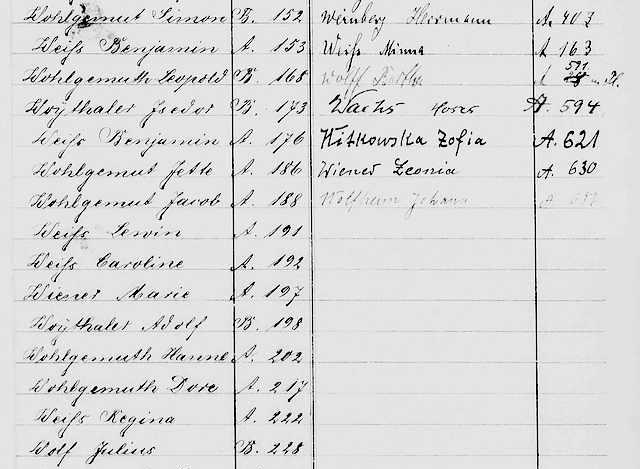 Wohlgemut Simon B. 152 Wirnberg Herrmann A. 403
Weiß Benjamin A. 153 Weiß Minna A 163
Wohlgemuth Leopold B. 168 Wolff 591
Woythaler Isidor B. 173 Wachs Moses A. 594
Weiß Benjamin A. 176 Witkowska Zofia A. 621
Wohlgemut Jette A. 186 Wiener Leonia A. 630
Wohlgemut Jacob A. 188 Wolfheim Johana A
Weiß Lewin A. 191
Weiß Caroline A. 192
Wiener Marie A. 197
Woythaler Adolf B. 198
Wohlgemuth Hanne A. 202
Wohlgemuth Dore A. 217
Weiß Regina A. 222
Wolf Julius B. 228